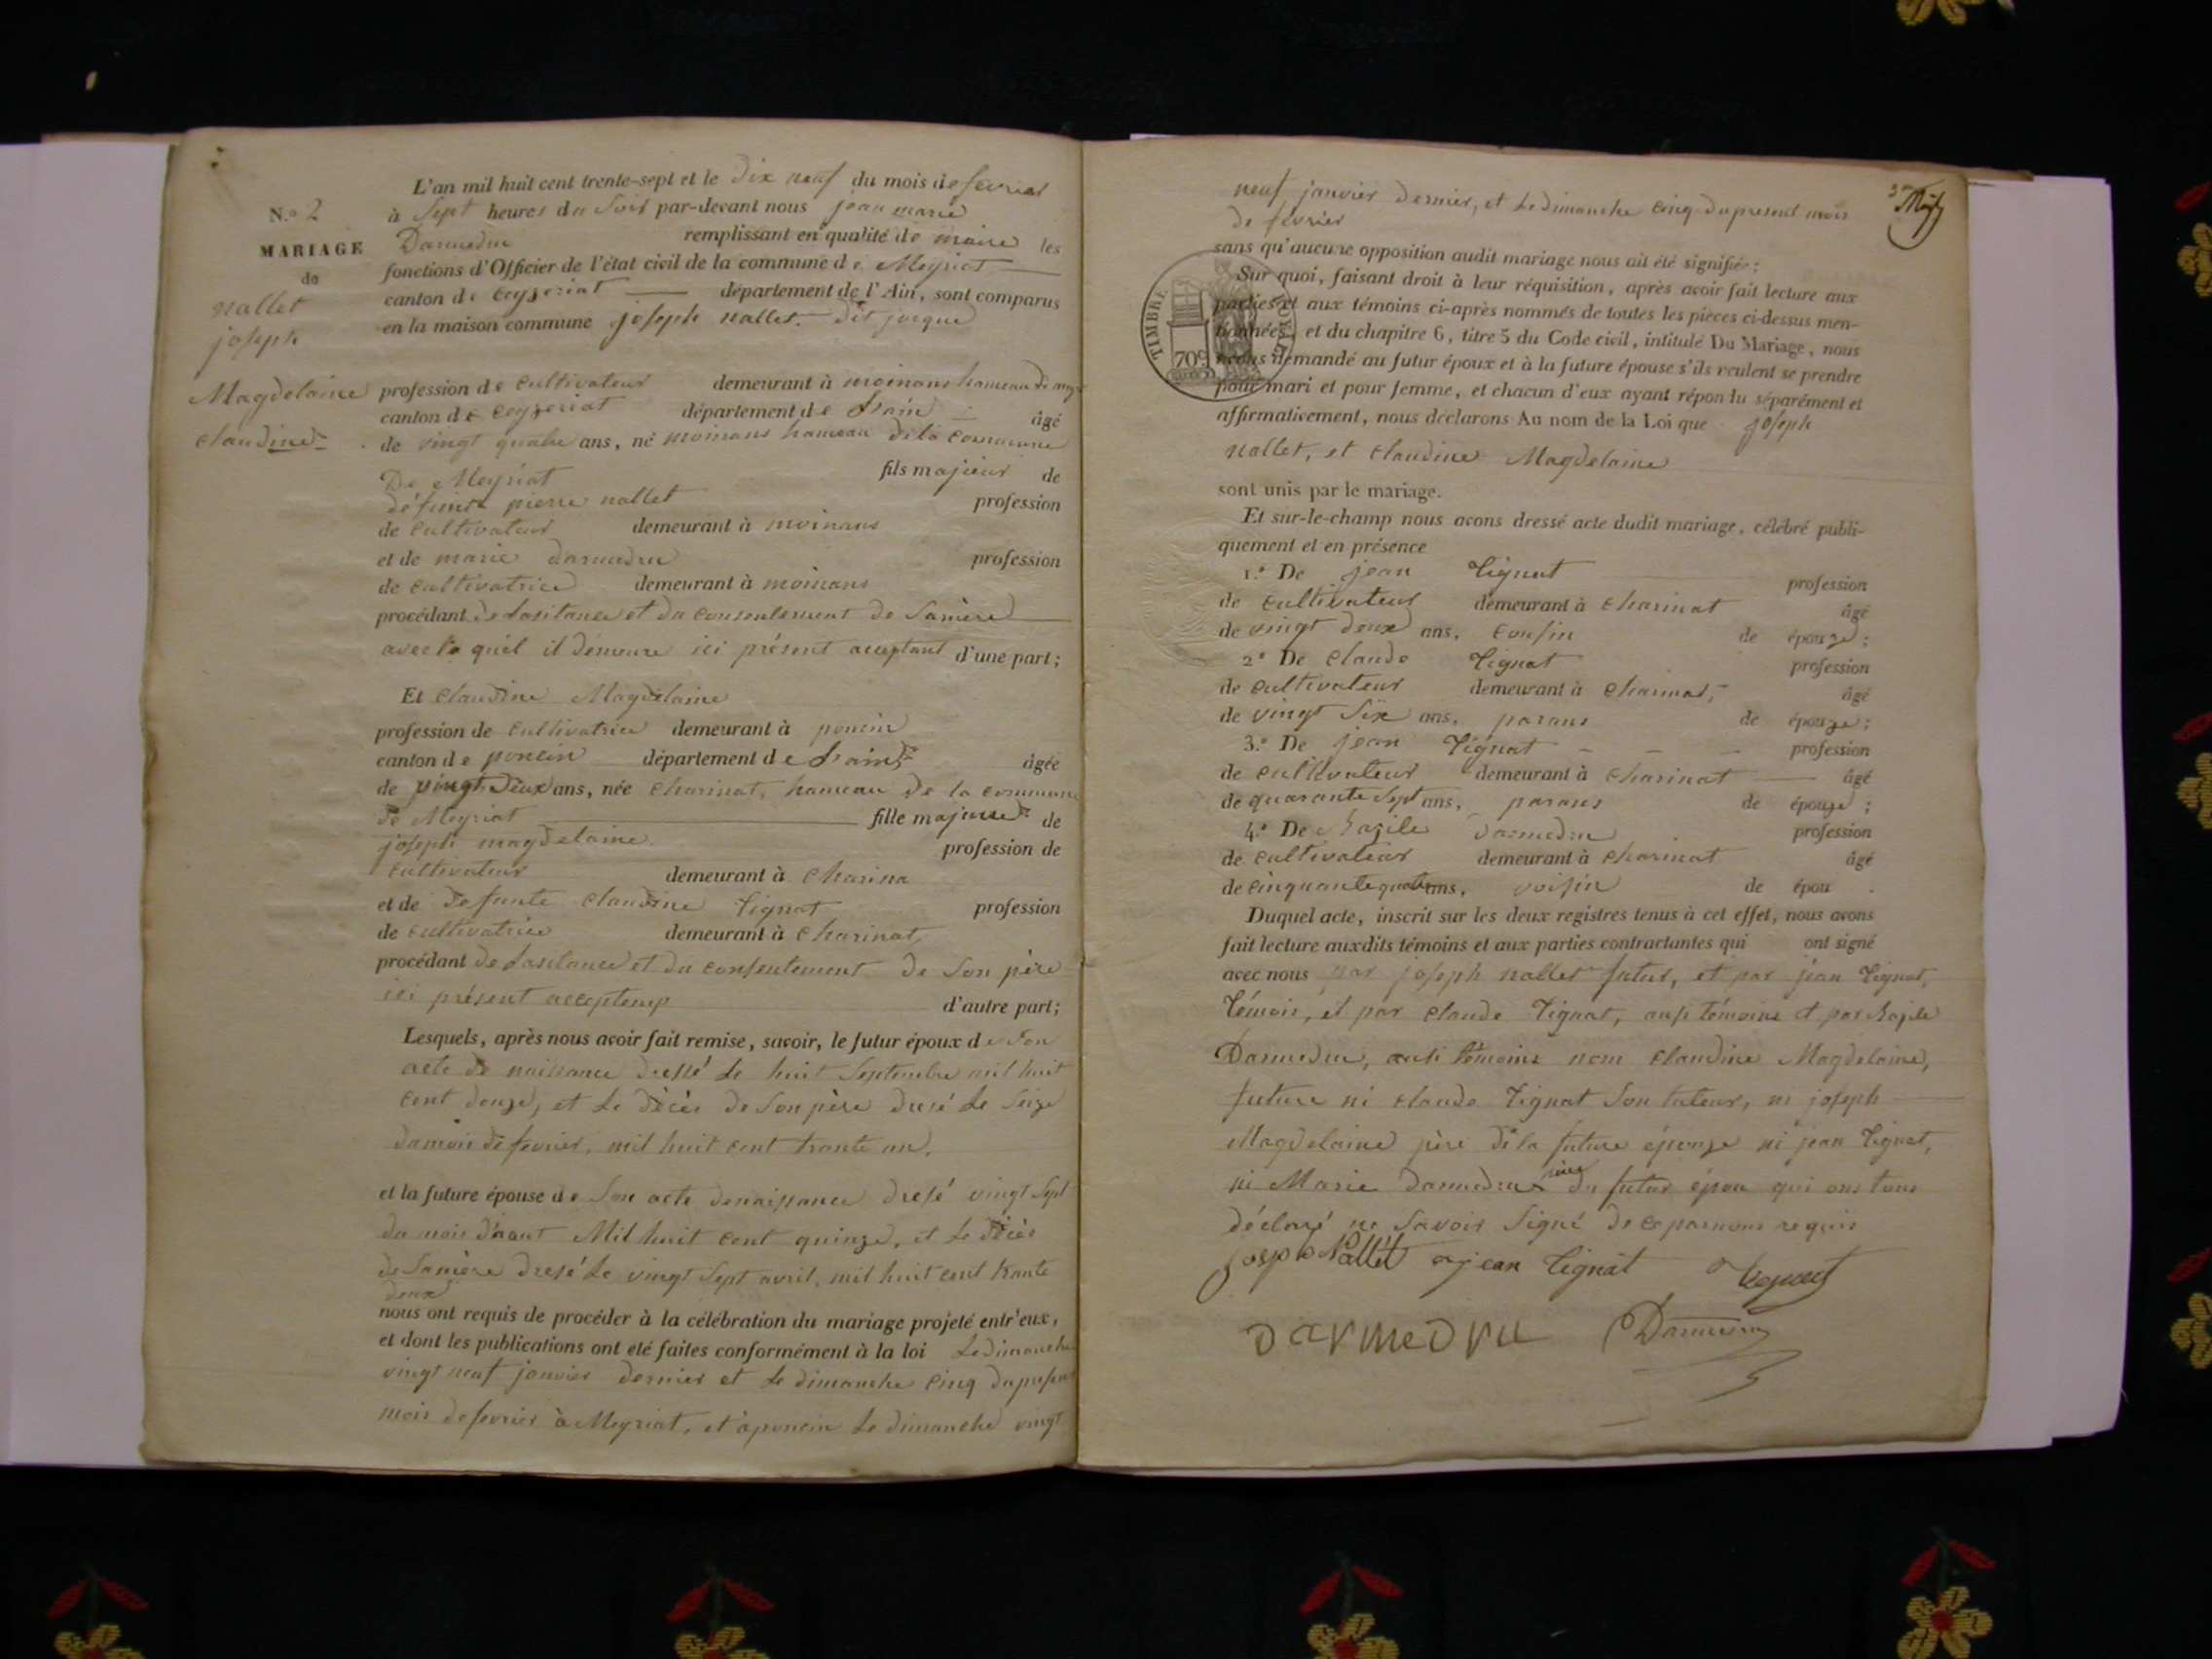 L'an mil huit cent trente-sept et le dix neuf du mois de fevrier
N.o 2
à sept heures du soir par-devant nous jean marie
MARIAGE
Darmedru remplissant en qualité de maire les
de
fonctions d'Officier de l'état civil de la commune de Meyriat
nallet
canton de ceyzeriat département de l'Ain, sont comparus
joseph
en la maison commune joseph nallet. dit
Magdelaine
profession de cultivateur demeurant à moinans hameau de
canton de ceyzeriat département de L'ain âgé
claudine
de vingt quatre ans, né moinans hameau de la commune
De Meyriat fils majeur de
défunt pierre nallet profession
de cultivateur demeurant à moinans
et de marie darmedru profession
de cultivatrice demeurant à moinans
procédant de Lasitance et du consentement de Samère
avec la quel il demeure ici présent acceptant d'une part;
Et claudine Magdelaine
profession de cultivatrice demeurant à poncin
canton de poncin département de L'ain âgée
de vingt deux ans, née charinat, hameau de la commune
de Meyriat fille majeure de
joseph magdelaine. profession de
cultivateur demeurant à Charina
et de defunte claudine tignat profession
de cultivatrice demeurant à Charinat,
procédant de Lasitance et du consentement de Son père
ici présent d'autre part;
Lesquels, après nous avoir fait remise, savoir, le futur époux de Son
acte de naissance dressé le huit Septembre mil huit
cent douze, et le décès de Son père dresé le Seize
du mois de fevrier, mil huit cent trante un.
et la future épouse de Son acte denaissance dresé vingt Sept
du mois d'aout Mil huit cent quinze, et le décès
de Samère dresé le vingt Sept avril, mil huit cent trante
deux
nous ont requis de procéder à la célébration du mariage projeté entr'eux,
et dont les publications ont été faites conformément à la loi Le dimanche
vingt neuf janvier dernier et le dimanche cinq du present
mois de fevrier à Meyriat, et à poncin le dimanche vingt
neuf janvier dernier, et le dimanche cinq du present mois
de fevrier
sans qu'aucune opposition audit mariage nous ait été signifiée;
Sur quoi, faisant droit à leur réquisition, après avoir fait lecture aux
parties et aux témoins ci-après nommés de toutes les pièces ci-dessus men-
tionnées, et du chapitre 6, titre 5 du Code civil, intitulé Du Mariage, nous
avons demandé au futur époux et à la future épouse s'ils veulent se prendre
pour mari et pour femme, et chacun d'eux ayant répondu séparément et
affirmativement, nous déclarons Au nom de la Loi que joseph
nallet, et claudine Magdelaine
sont unis par le mariage.
Et sur-le-champ nous avons dressé acte dudit mariage, célébré publi-
quement et en présence
1.o De jean tignat profession
de cultivateur demeurant à charinat âgé
de vingt deux ans, cousin de épouze;
2.o De claude tignat profession
de cultivateur demeurant à charinat, âgé
de vingt six ans, parans de épouze;
3.o De jean tignat profession
de cultivateur demeurant à charinat âgé
de quarante sept ans, parans de épouze;
4.o De Bazile darmedru profession
de cultivateur demeurant à charinat âgé
de cinquante quatre ans, voisin de épou
Duquel acte, inscrit sur les deux registres tenus à cet effet, nous avons
fait lecture auxdits témoins et aux parties contractantes qui ont signé
avec nous par joseph nallet futur, et par jean tignat,
témoin, et par claude tignat, ausi témoins et par Bazile
Darmedru, ausi témoins nom claudine Magdelaine,
future ni claude tignat Son tuteur, ni joseph
Magdelaine père de la future épouze ni jean tignat,
ni Marie darmedru mère du futur épou qui ons tous
déclaré ne Savoir Signé de requis
joseph Nallet jean tignat tignat
Darmedru Darmedru
TIMBRE ROYAL
70c